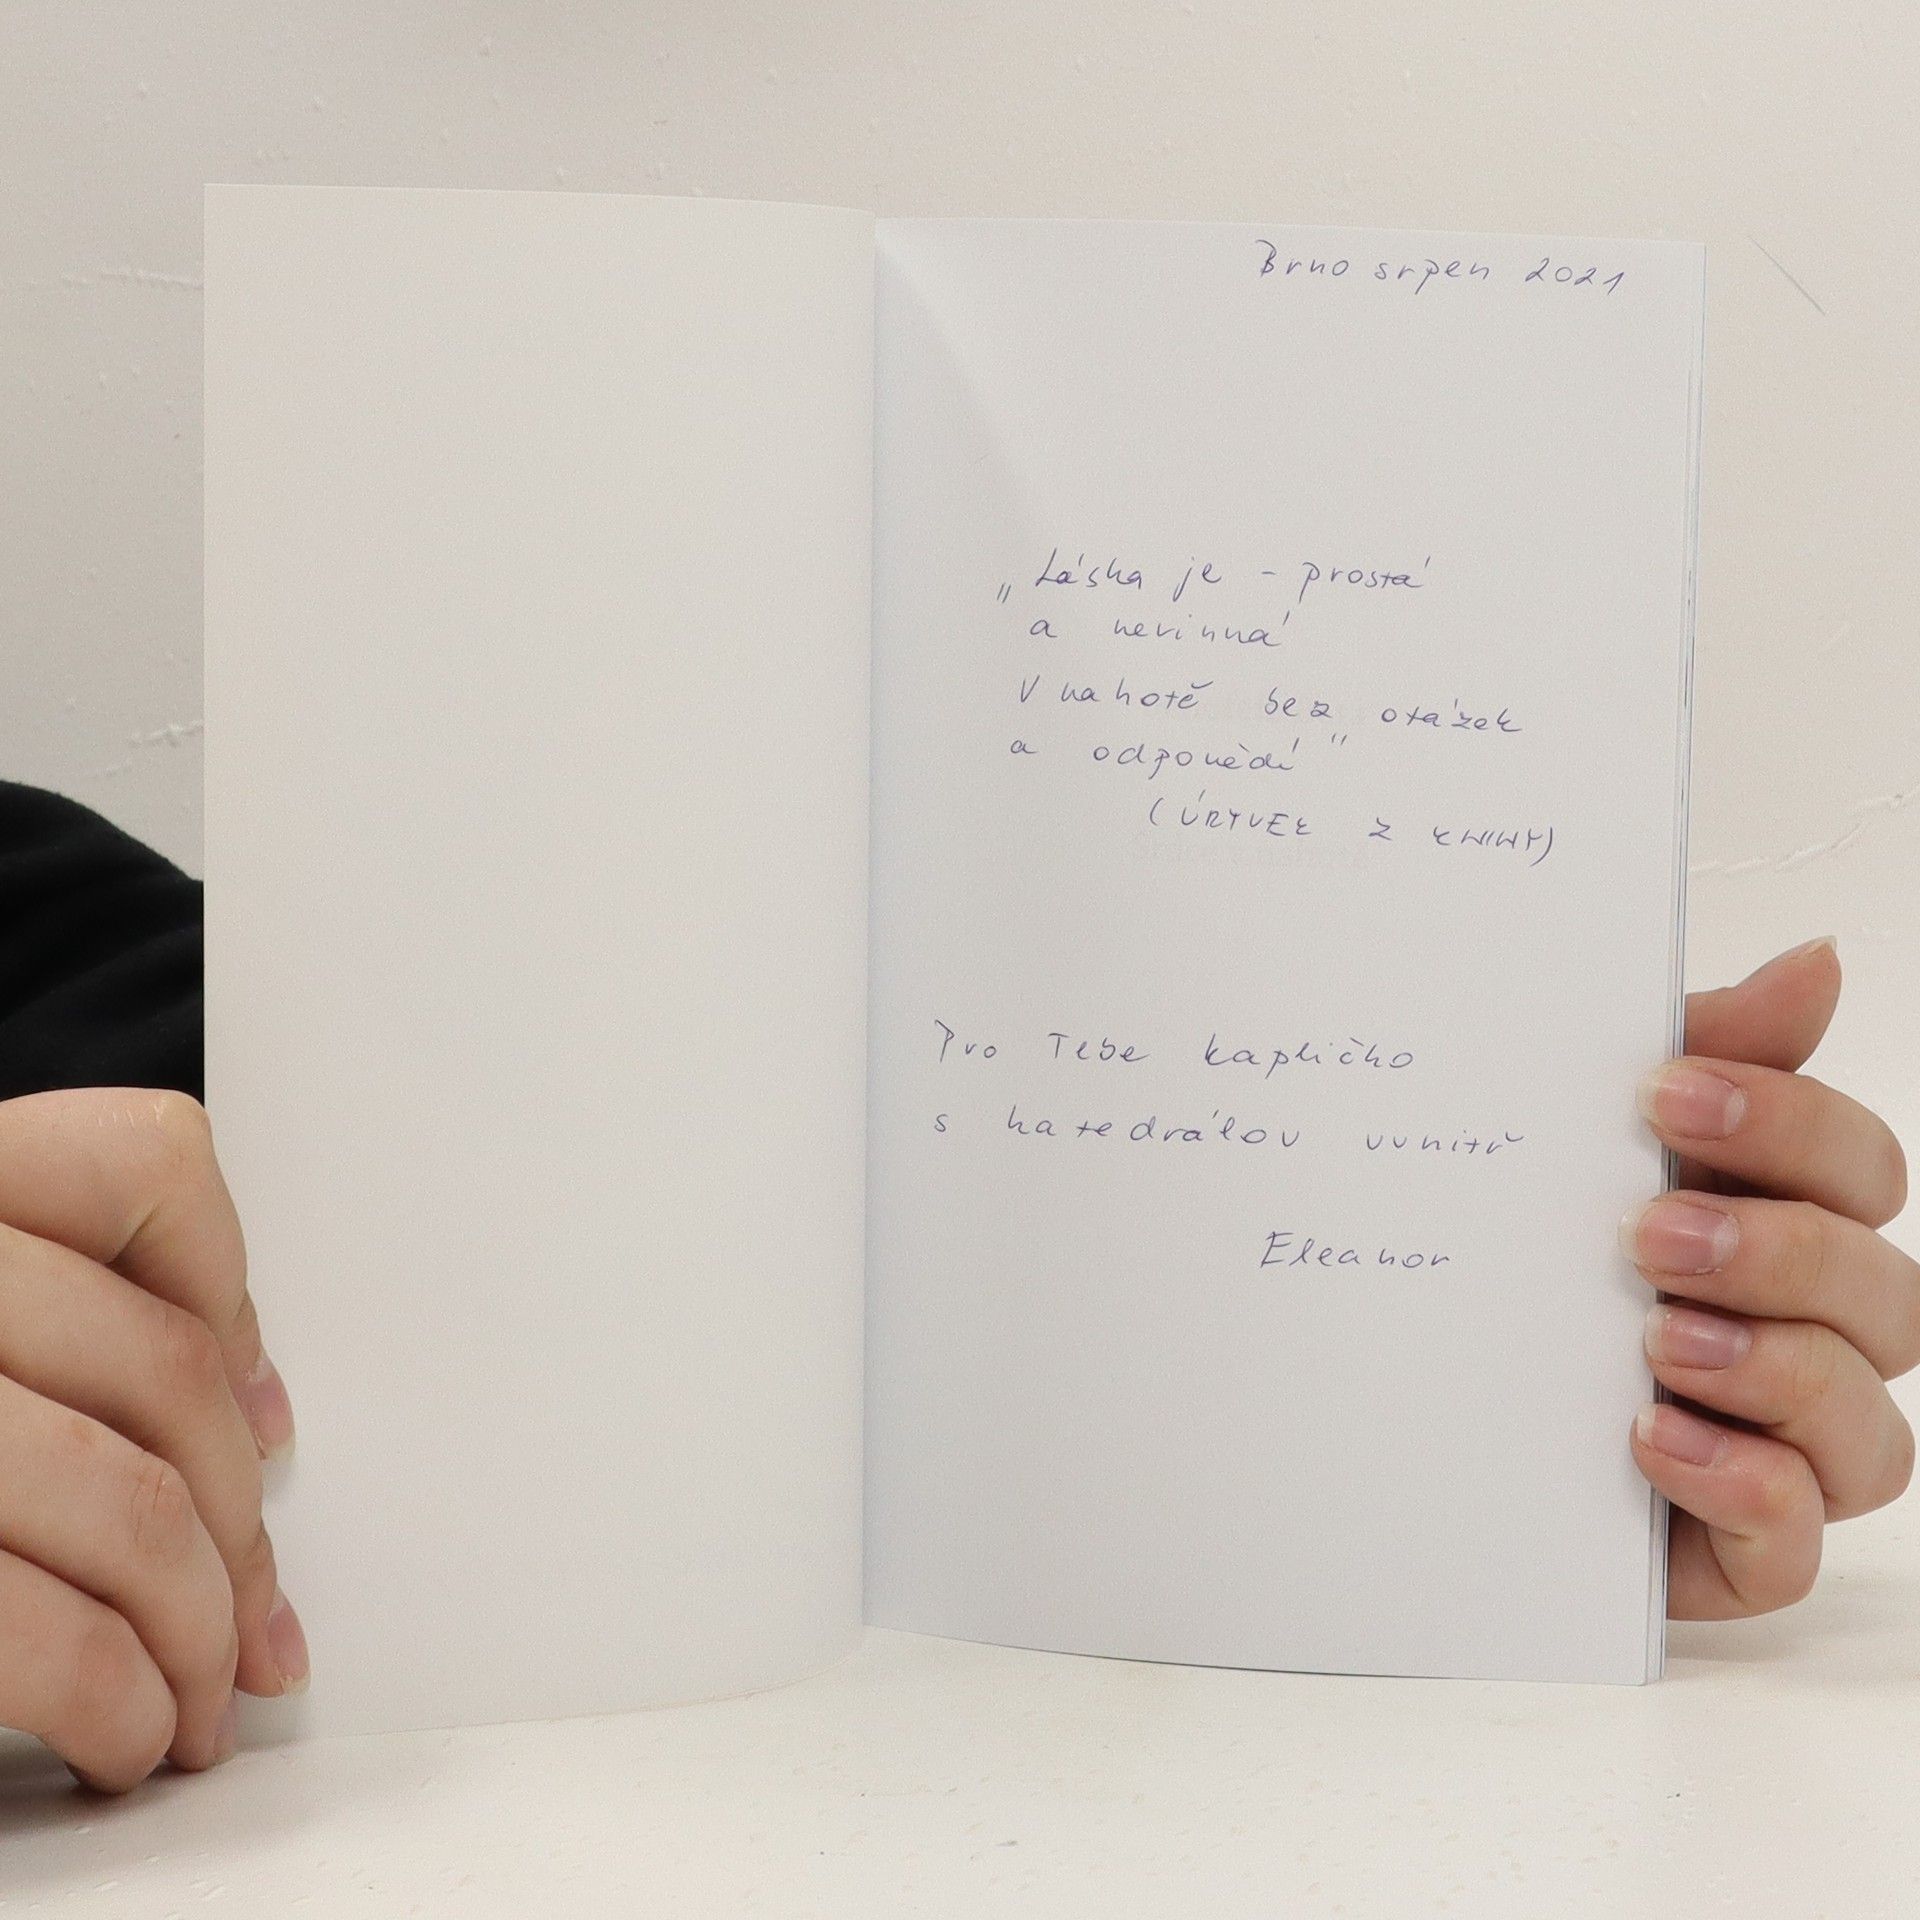 Brno srpen 2021
„Láska je - prostá
a nevinná
V nahotě bez otázek
a odpovědí"
(ÚRYVEK Z KNIHY)
Pro Tebe kapličko
s katedrálou uvnitř
Eleanor